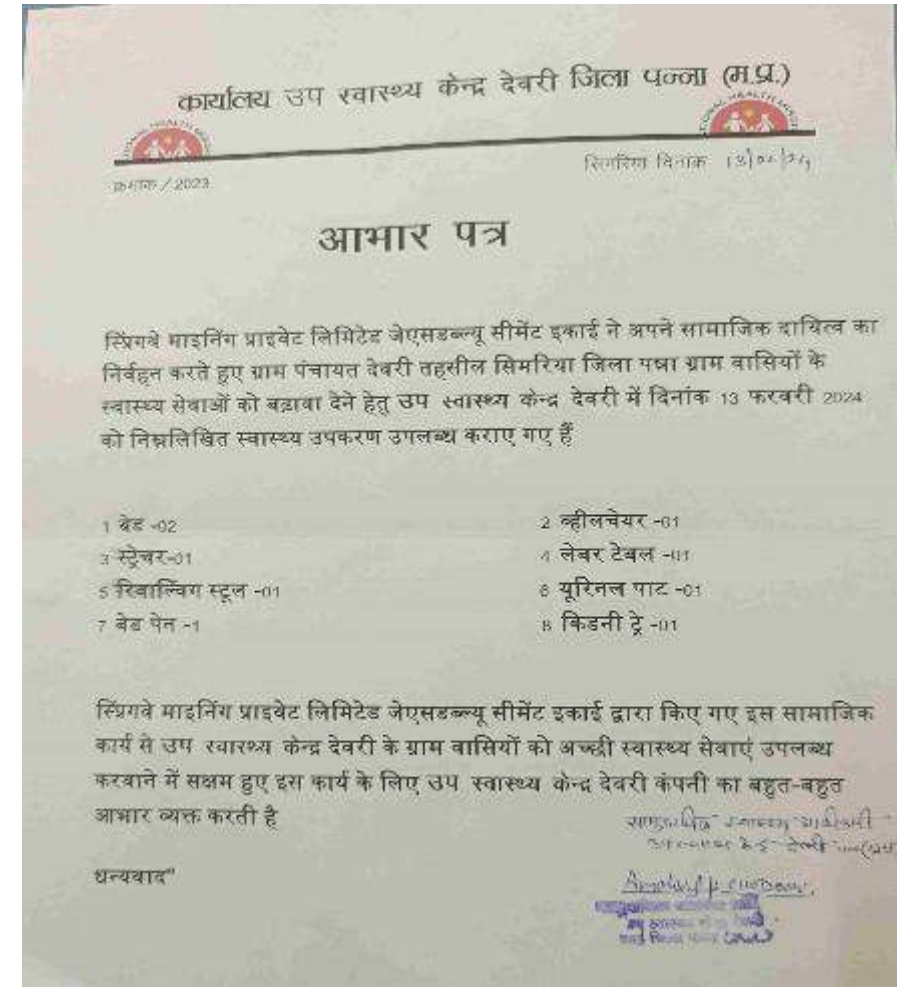 कार्यालय उप स्वास्थ्य केन्द्र देवरी जिला पन्ना (म.प्र.)
सिमरिया दिनांक 13/02/24
क्रमांक / 2023
आभार पत्र
स्प्रिंगवे माइनिंग प्राइवेट लिमिटेड जेएसडब्ल्यू सीमेंट इकाई ने अपने सामाजिक दायित्व का
निर्वहन करते हुए ग्राम पंचायत देवरी तहसील सिमरिया जिला पन्ना ग्राम वासियों के
स्वास्थ्य सेवाओं को बढ़ावा देने हेतु उप स्वास्थ्य केन्द्र देवरी में दिनांक 13 फरवरी 2024
को निम्नलिखित स्वास्थ्य उपकरण उपलब्ध कराए गए हैं
1 बेड -02
2 व्हीलचेयर -01
3 स्ट्रेचर-01
4 लेबर टेबल -01
5 रिवाल्विंग स्टूल -01
6 यूरिनल पाट -01
7 बेड पेन -1
8 किडनी ट्रे -01
स्प्रिंगवे माइनिंग प्राइवेट लिमिटेड जेएसडब्ल्यू सीमेंट इकाई द्वारा किए गए इस सामाजिक
कार्य से उप स्वास्थ्य केन्द्र देवरी के ग्राम वासियों को अच्छी स्वास्थ्य सेवाएं उपलब्ध
करवाने में सक्षम हुए इस कार्य के लिए उप स्वास्थ्य केन्द्र देवरी कंपनी का बहुत-बहुत
आभार व्यक्त करती है
धन्यवाद"